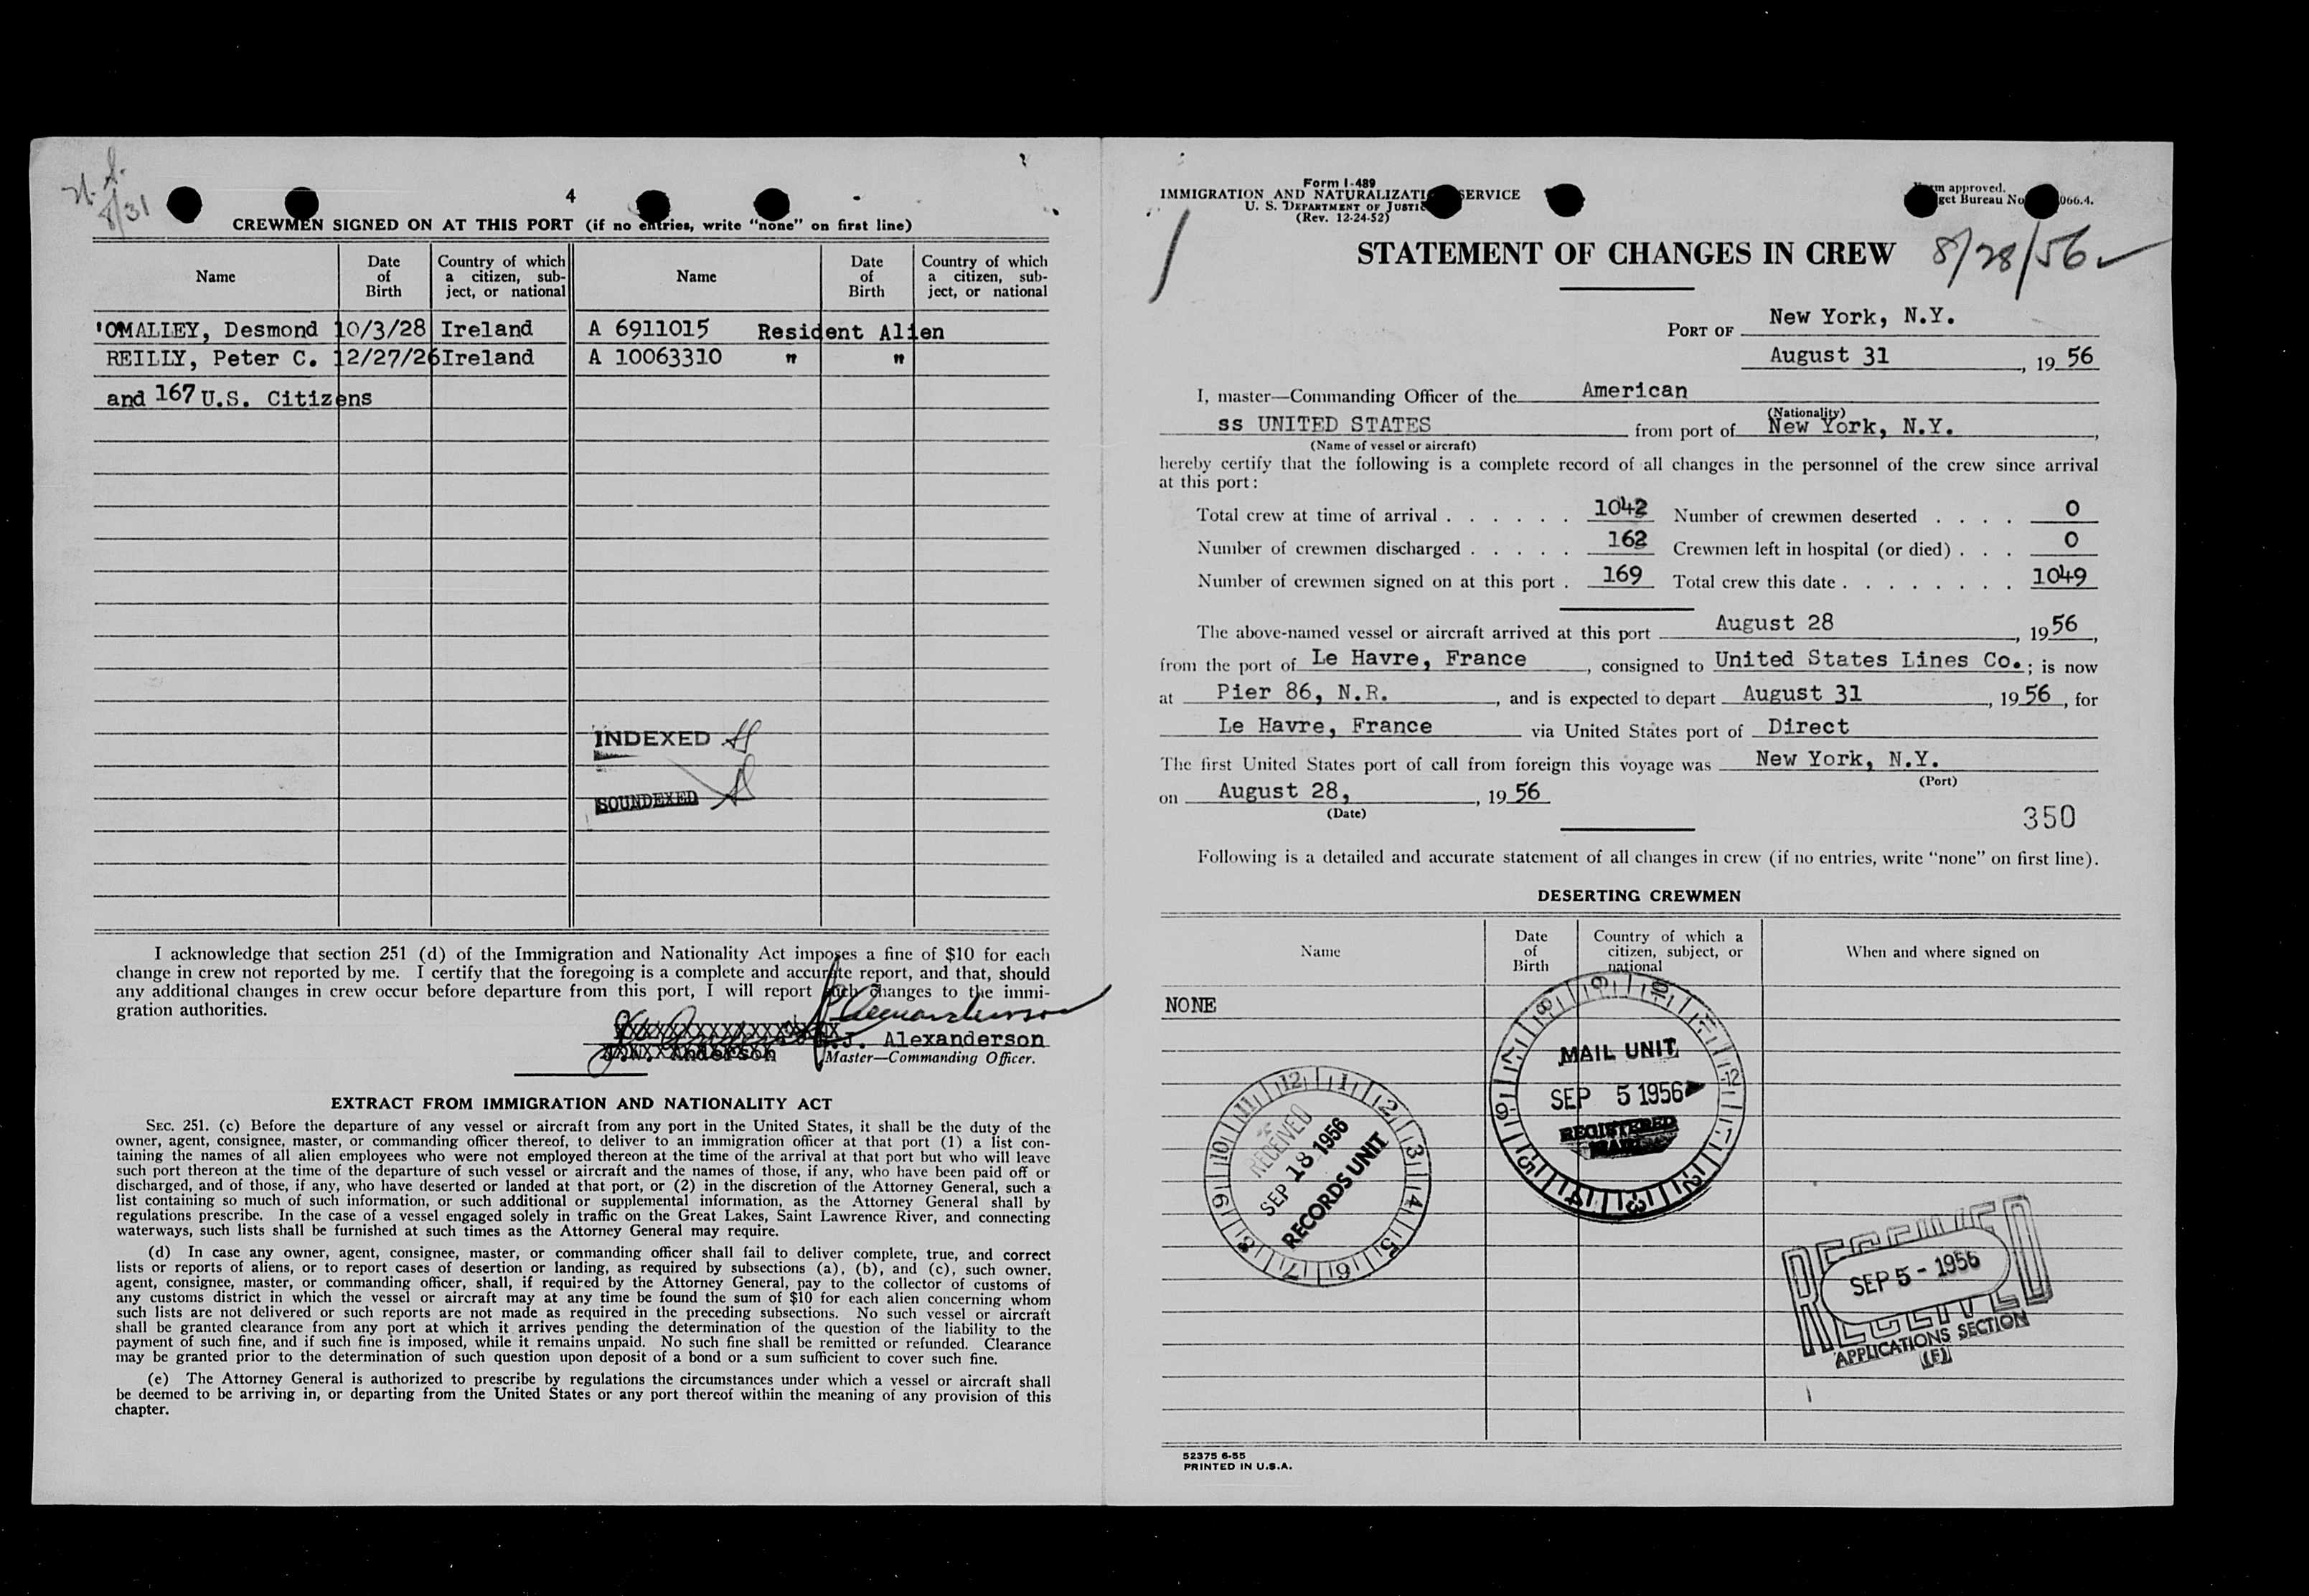 8/31
4
CREWMEN SIGNED ON AT THIS PORT (if no entries, write "none" on first line)
Name Date of Birth Country of which a citizen, subject, or national Name Date of Birth Country of which a citizen, subject, or national
'OMALLEY, Desmond 10/3/28 Ireland A 6911015 Resident Alien
REILLY, Peter C. 12/27/26 Ireland A 10063310 " "
and 167 U.S. Citizens
INDEXED
SOUNDEXED
I acknowledge that section 251 (d) of the Immigration and Nationality Act imposes a fine of $10 for each
change in crew not reported by me. I certify that the foregoing is a complete and accurate report, and that, should
any additional changes in crew occur before departure from this port, I will report such changes to the immi-
gration authorities.
J. Alexanderson
J.W. Anderson Master—Commanding Officer.
EXTRACT FROM IMMIGRATION AND NATIONALITY ACT
SEC. 251. (c) Before the departure of any vessel or aircraft from any port in the United States, it shall be the duty of the
owner, agent, consignee, master, or commanding officer thereof, to deliver to an immigration officer at that port (1) a list con-
taining the names of all alien employees who were not employed thereon at the time of the arrival at that port but who will leave
such port thereon at the time of the departure of such vessel or aircraft and the names of those, if any, who have been paid off or
discharged, and of those, if any, who have deserted or landed at that port, or (2) in the discretion of the Attorney General, such a
list containing so much of such information, or such additional or supplemental information, as the Attorney General shall by
regulations prescribe. In the case of a vessel engaged solely in traffic on the Great Lakes, Saint Lawrence River, and connecting
waterways, such lists shall be furnished at such times as the Attorney General may require.
(d) In case any owner, agent, consignee, master, or commanding officer shall fail to deliver complete, true, and correct
lists or reports of aliens, or to report cases of desertion or landing, as required by subsections (a), (b), and (c), such owner,
agent, consignee, master, or commanding officer, shall, if required by the Attorney General, pay to the collector of customs of
any customs district in which the vessel or aircraft may at any time be found the sum of $10 for each alien concerning whom
such lists are not delivered or such reports are not made as required in the preceding subsections. No such vessel or aircraft
shall be granted clearance from any port at which it arrives pending the determination of the question of the liability to the
payment of such fine, and if such fine is imposed, while it remains unpaid. No such fine shall be remitted or refunded. Clearance
may be granted prior to the determination of such question upon deposit of a bond or a sum sufficient to cover such fine.
(e) The Attorney General is authorized to prescribe by regulations the circumstances under which a vessel or aircraft shall
be deemed to be arriving in, or departing from the United States or any port thereof within the meaning of any provision of this
chapter.
Form I-489
IMMIGRATION AND NATURALIZATI SERVICE
U. S. DEPARTMENT OF JUSTI
(Rev. 12-24-52)
m approved.
get Bureau No 066.4.
STATEMENT OF CHANGES IN CREW
8/28/56
PORT OF New York, N.Y.
August 31, 19 56
I, master—Commanding Officer of the American
(Nationality)
ss UNITED STATES from port of New York, N.Y.,
(Name of vessel or aircraft)
hereby certify that the following is a complete record of all changes in the personnel of the crew since arrival
at this port:
Total crew at time of arrival . . . . . . 1042 Number of crewmen deserted . . . . 0
Number of crewmen discharged . . . . . 162 Crewmen left in hospital (or died) . . . 0
Number of crewmen signed on at this port . 169 Total crew this date . . . . . . . . 1049
The above-named vessel or aircraft arrived at this port August 28, 19 56,
from the port of Le Havre, France, consigned to United States Lines Co.; is now
at Pier 86, N.R., and is expected to depart August 31, 19 56, for
Le Havre, France via United States port of Direct
The first United States port of call from foreign this voyage was New York, N.Y.
(Port)
on August 28, , 19 56
(Date)
350
Following is a detailed and accurate statement of all changes in crew (if no entries, write "none" on first line).
DESERTING CREWMEN
Name Date of Birth Country of which a citizen, subject, or national When and where signed on
NONE
MAIL UNIT
SEP 5 1956
REGISTERED
RECEIVED
SEP 18 1956
RECORDS UNIT
RECEIVED
SEP 5 - 1956
APPLICATIONS SECTION
(F)
52375 6-55
PRINTED IN U.S.A.